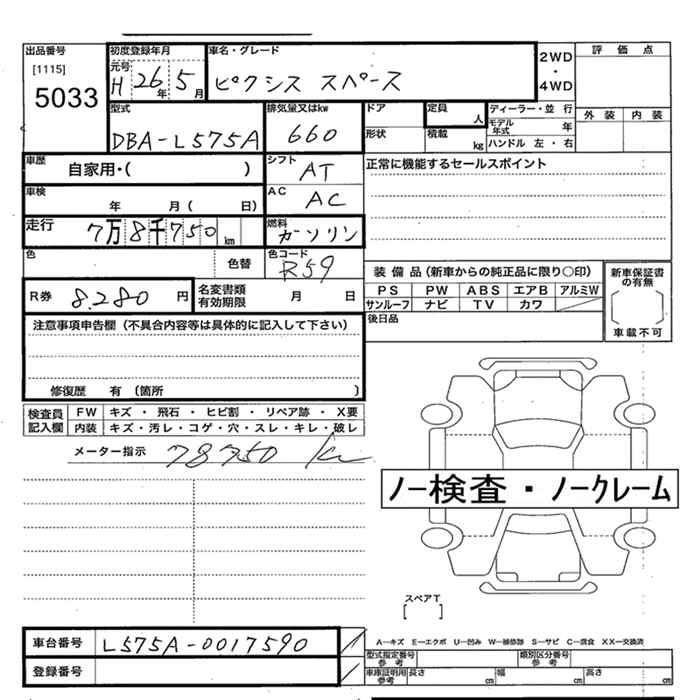 出品番号 初度登録年月 車名・グレード 2WD・4WD 評価点
[1115] 元号 H 26年 5月 ピクシス スペース
5033
型式 排気量又はkw ドア 定員 人 ディーラー・並行 外装 内装
DBA-L575A 660 形状 積載 kg モデル年式 年
ハンドル 左・右
車歴 自家用・( ) シフト AT 正常に機能するセールスポイント
車検 年 月( 日) AC AC
走行 7万8千750km 燃料 ガソリン
色 色替 色コード R59 装備品(新車からの純正品に限り〇印) 新車保証書の有無
R券 8,280 円 名変書類有効期限 月 日 PS PW ABS エアB アルミW
サンルーフ ナビ TV カワ 車載不可
注意事項申告欄(不具合内容等は具体的に記入して下さい) 後日品
修復歴 有(箇所 )
検査員記入欄 FW キズ・飛石・ヒビ割・リペア跡・X要
内装 キズ・汚レ・コゲ・穴・スレ・キレ・破レ
メーター指示 78750 km
ノー検査・ノークレーム
スペアT
[ ]
車台番号 L575A-0017590 A―キズ E―エクボ U―凹み W―補修跡 S―サビ C―腐食 XX―交換済
型式指定番号 参考 類別区分番号 参考
登録番号 車庫証明用 参考 長さ cm 幅 cm 高さ cm